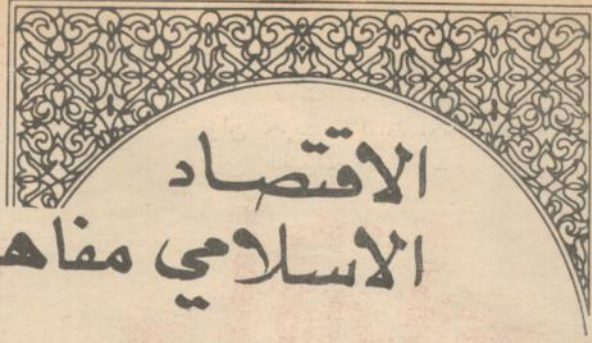 الاقتصاد
الاسلامي مفاه